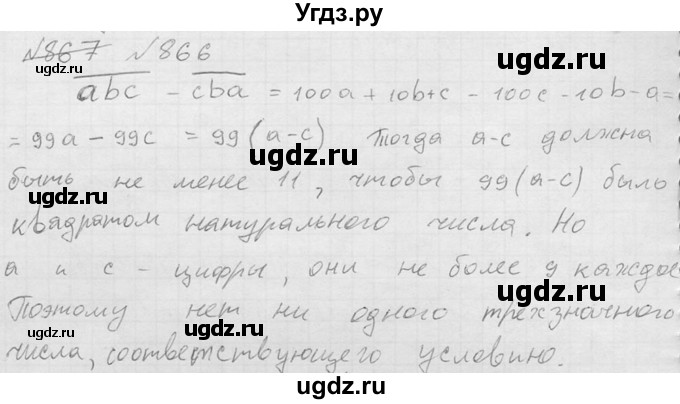 Угдз.ру
№867 №866
abc - cba = 100a + 10b+c - 100c - 10b-a=
= 99a - 99c = 99(a-c) Тогда a-c должна
быть не менее 11, чтобы 99(a-c) было
квадратом натурального числа. Но
a и c - цифры, они не более 9 каждое
Поэтому нет ни одного трехзначного
числа, соответствующего условию.
ugdz.ru
ugdz.ru
ugdz.ru
ugdz.ru
ugdz.ru
ugdz.ru
ugdz.ru
ugdz.ru
ugdz.ru
ugdz.ru
ugdz.ru
ugdz.ru
ugdz.ru